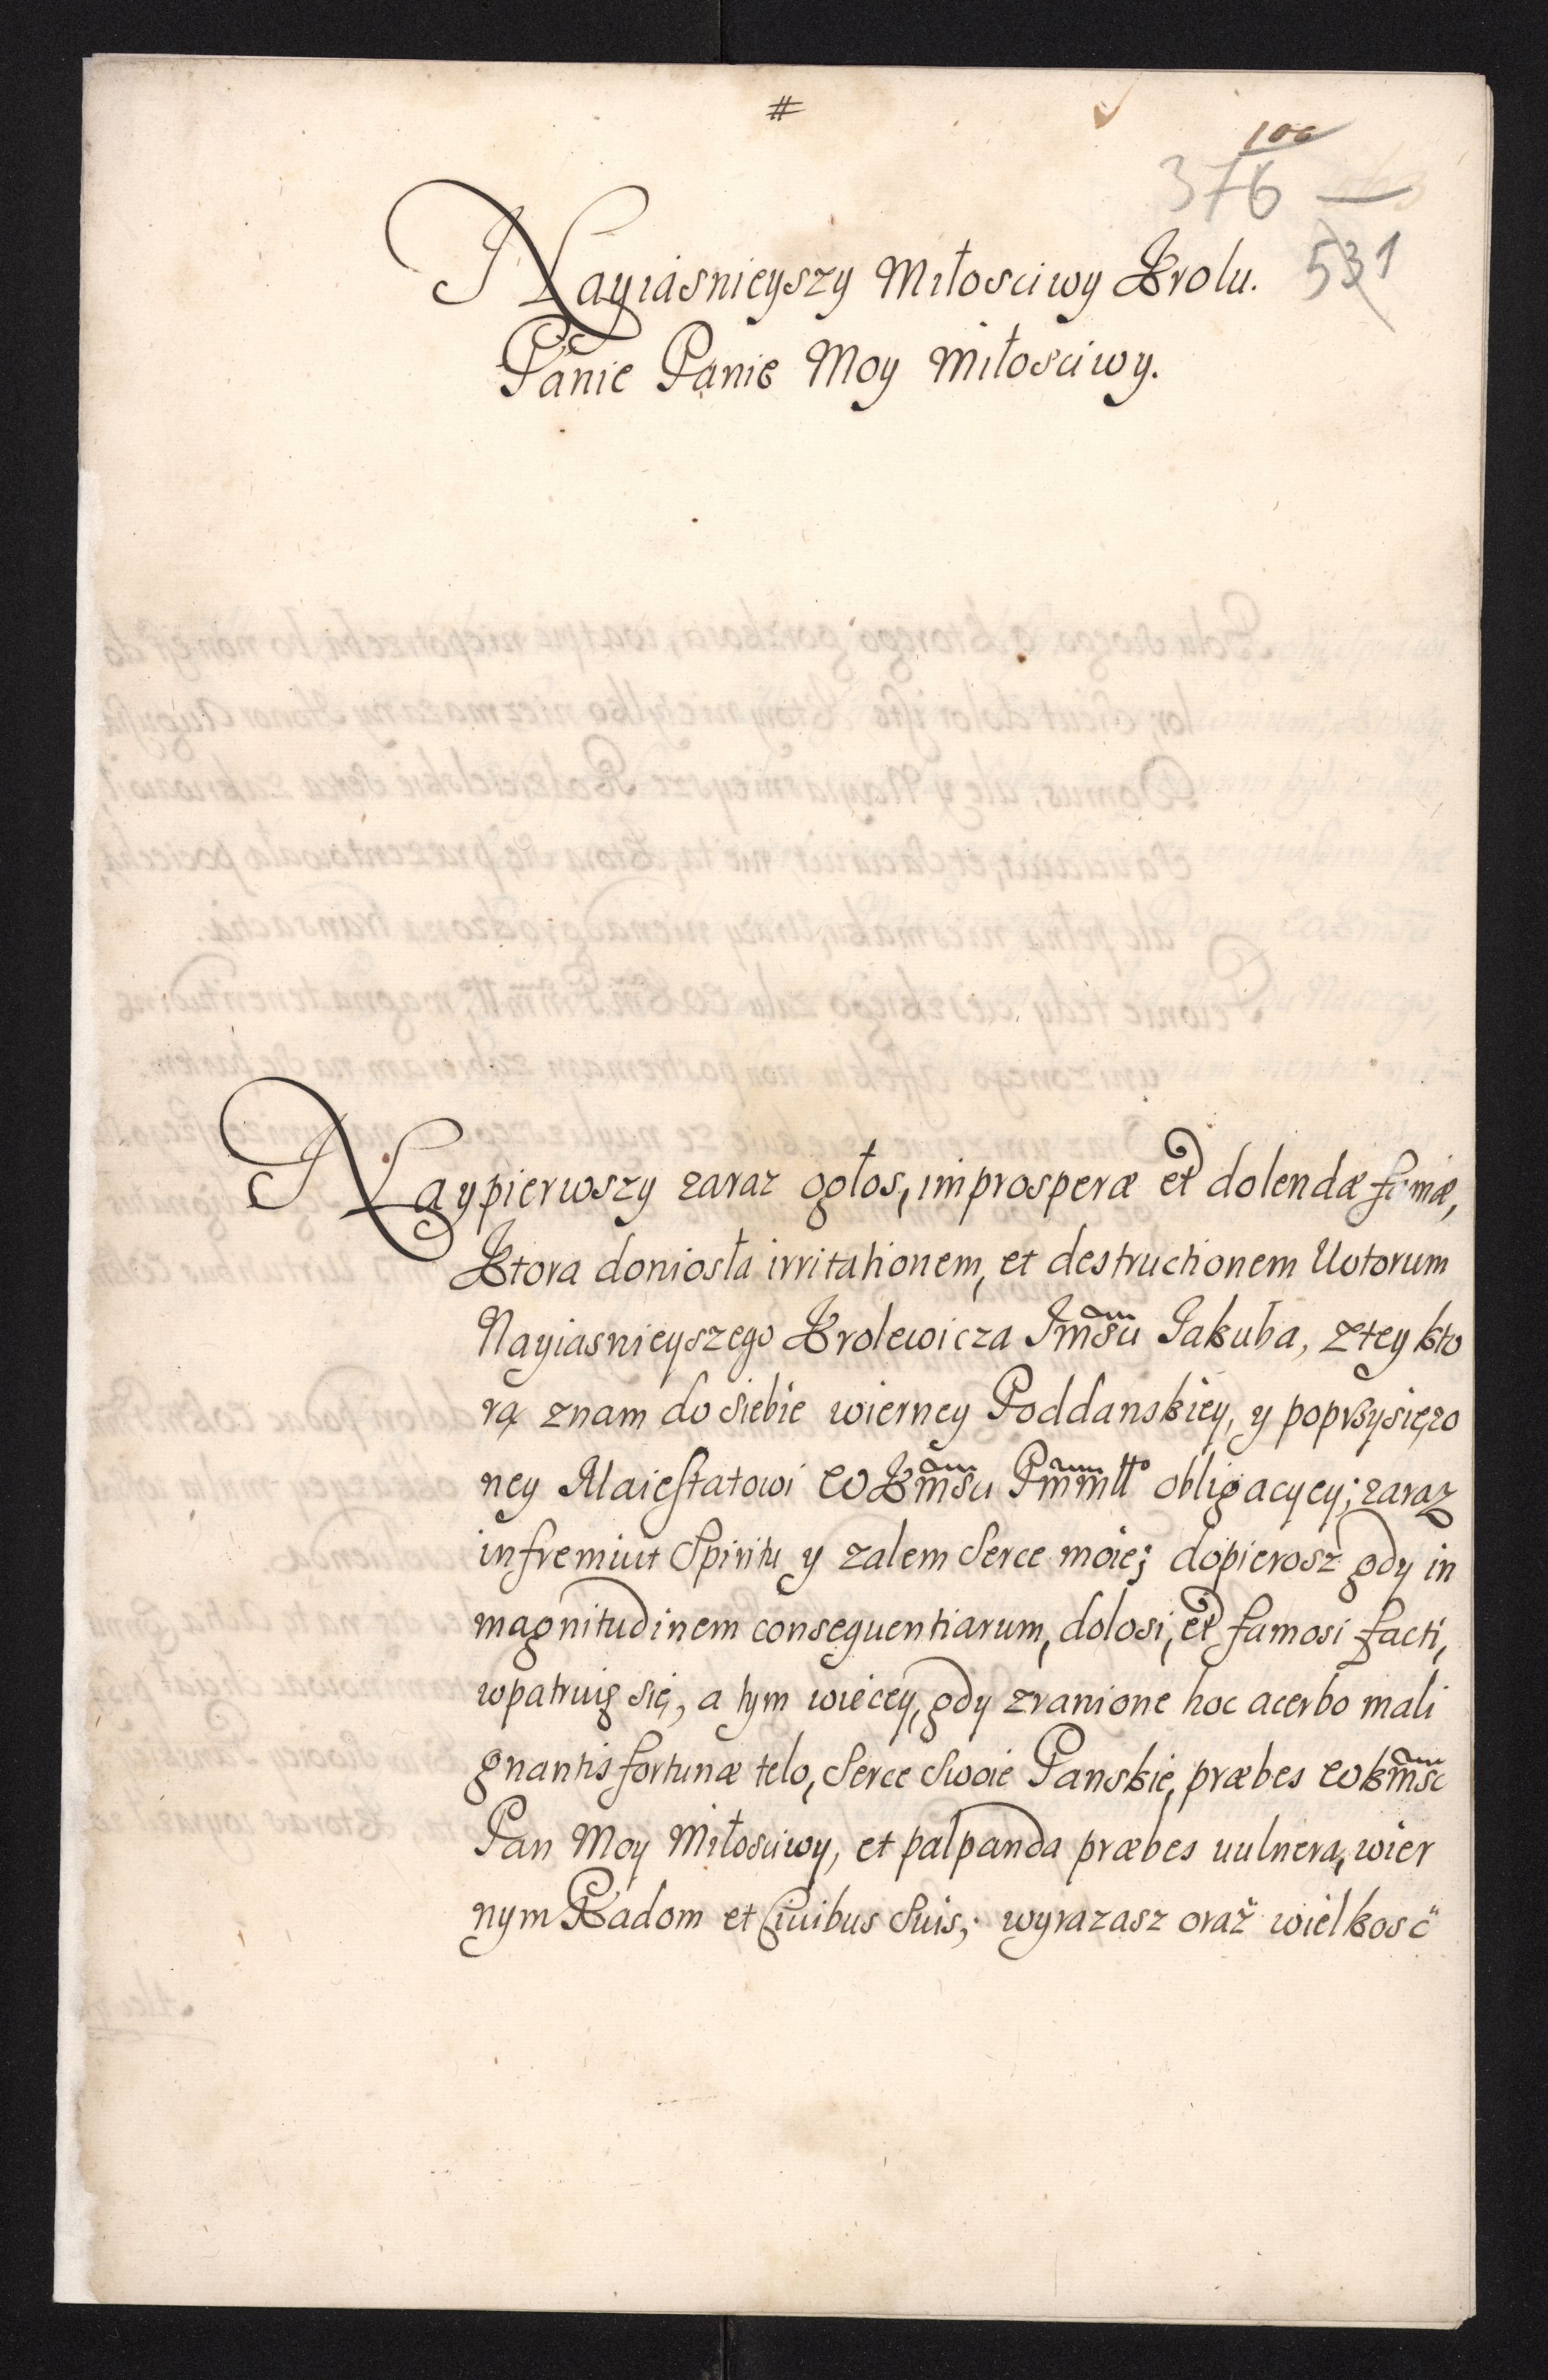 #
100
376
531
Nayiasnieyszy Miłosciwy Krolu.
Panie Panie Moy Miłosciwy.
Naypierwszy zaraz ogłos, improsperæ et dolendæ famæ,
Ktora doniosła irritationem, et destructionem Uotorum
Nayiasnieyszego Krolewicza Jmsći Jakuba, z tey kto
rą znam do siebie wierney Poddanskiey, y poprzysięzo
ney Maiestatowi WKmsći Pmmłł° obligacyey; zaraz
infremiut Spiritu y zalem Serce moie; dopierosz gdy in
magnitudinem consequentiarum, dolosi, et famosi facti,
wpatruię się, a tym wiecey, gdy zranione hoc acerbo mali
gnantis fortunæ telo, Serce Swoie Panskie, præbes WKmsć
Pan Moy Miłosciwy, et palpanda præbes uulnera, wier
nym Radom et Ciuibus Suis; wyrazasz oraz wielkosć